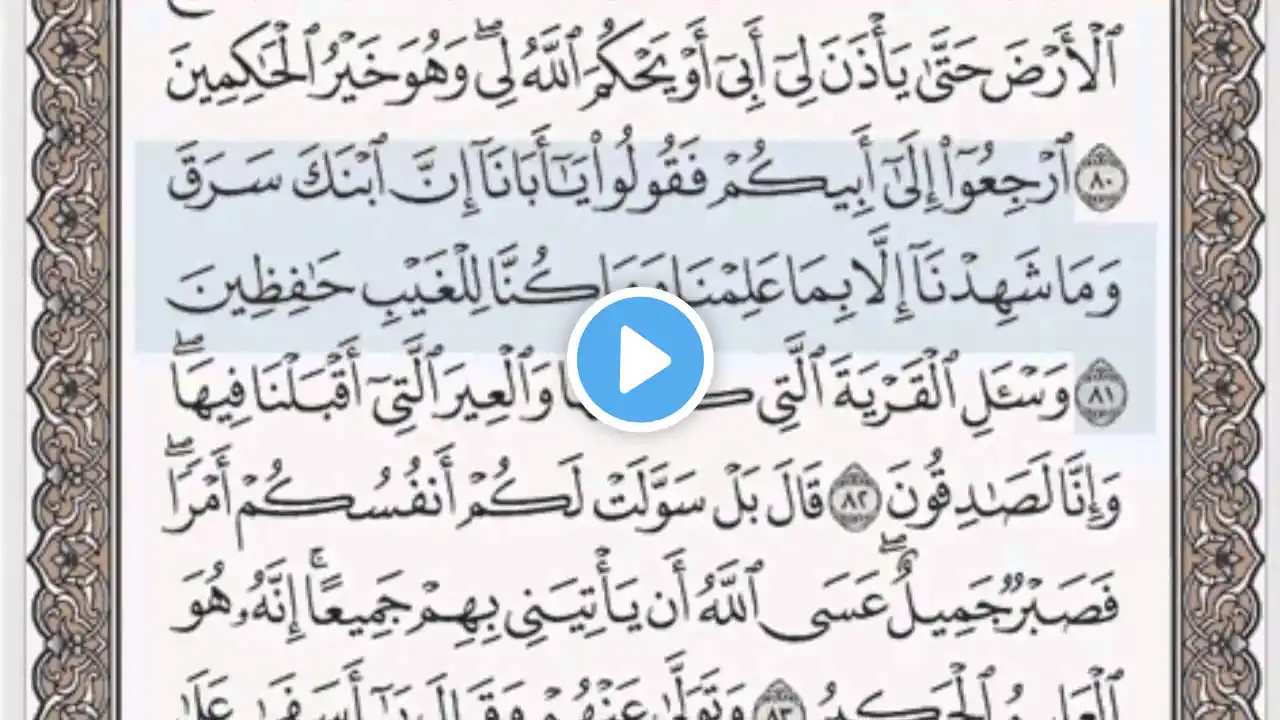 ٱلْأَرْضَ حَتَّىٰ يَأْذَنَ لِىٓ أَبِىٓ أَوْ يَحْكُمَ ٱللَّهُ لِى ۖ وَهُوَ خَيْرُ ٱلْحَٰكِمِينَ
٨٠ ٱرْجِعُوٓا۟ إِلَىٰٓ أَبِيكُمْ فَقُولُوا۟ يَٰٓأَبَانَآ إِنَّ ٱبْنَكَ سَرَقَ
وَمَا شَهِدْنَآ إِلَّا بِمَا عَلِمْنَا كُنَّا لِلْغَيْبِ حَٰفِظِينَ
٨١ وَسْـَٔلِ ٱلْقَرْيَةَ ٱلَّتِى وَٱلْعِيرَ ٱلَّتِىٓ أَقْبَلْنَا فِيهَا ۖ
وَإِنَّا لَصَٰدِقُونَ ٨٢ قَالَ بَلْ سَوَّلَتْ لَكُمْ أَنفُسُكُمْ أَمْرًا ۖ
فَصَبْرٌ جَمِيلٌ ۖ عَسَى ٱللَّهُ أَن يَأْتِيَنِى بِهِمْ جَمِيعًا ۚ إِنَّهُۥ هُوَ
ٱلْعَلِيمُ ٱلْحَكِيمُ ٨٣ وَتَوَلَّىٰ عَنْهُمْ وَقَالَ يَٰٓأَسَفَىٰ عَلَىٰ